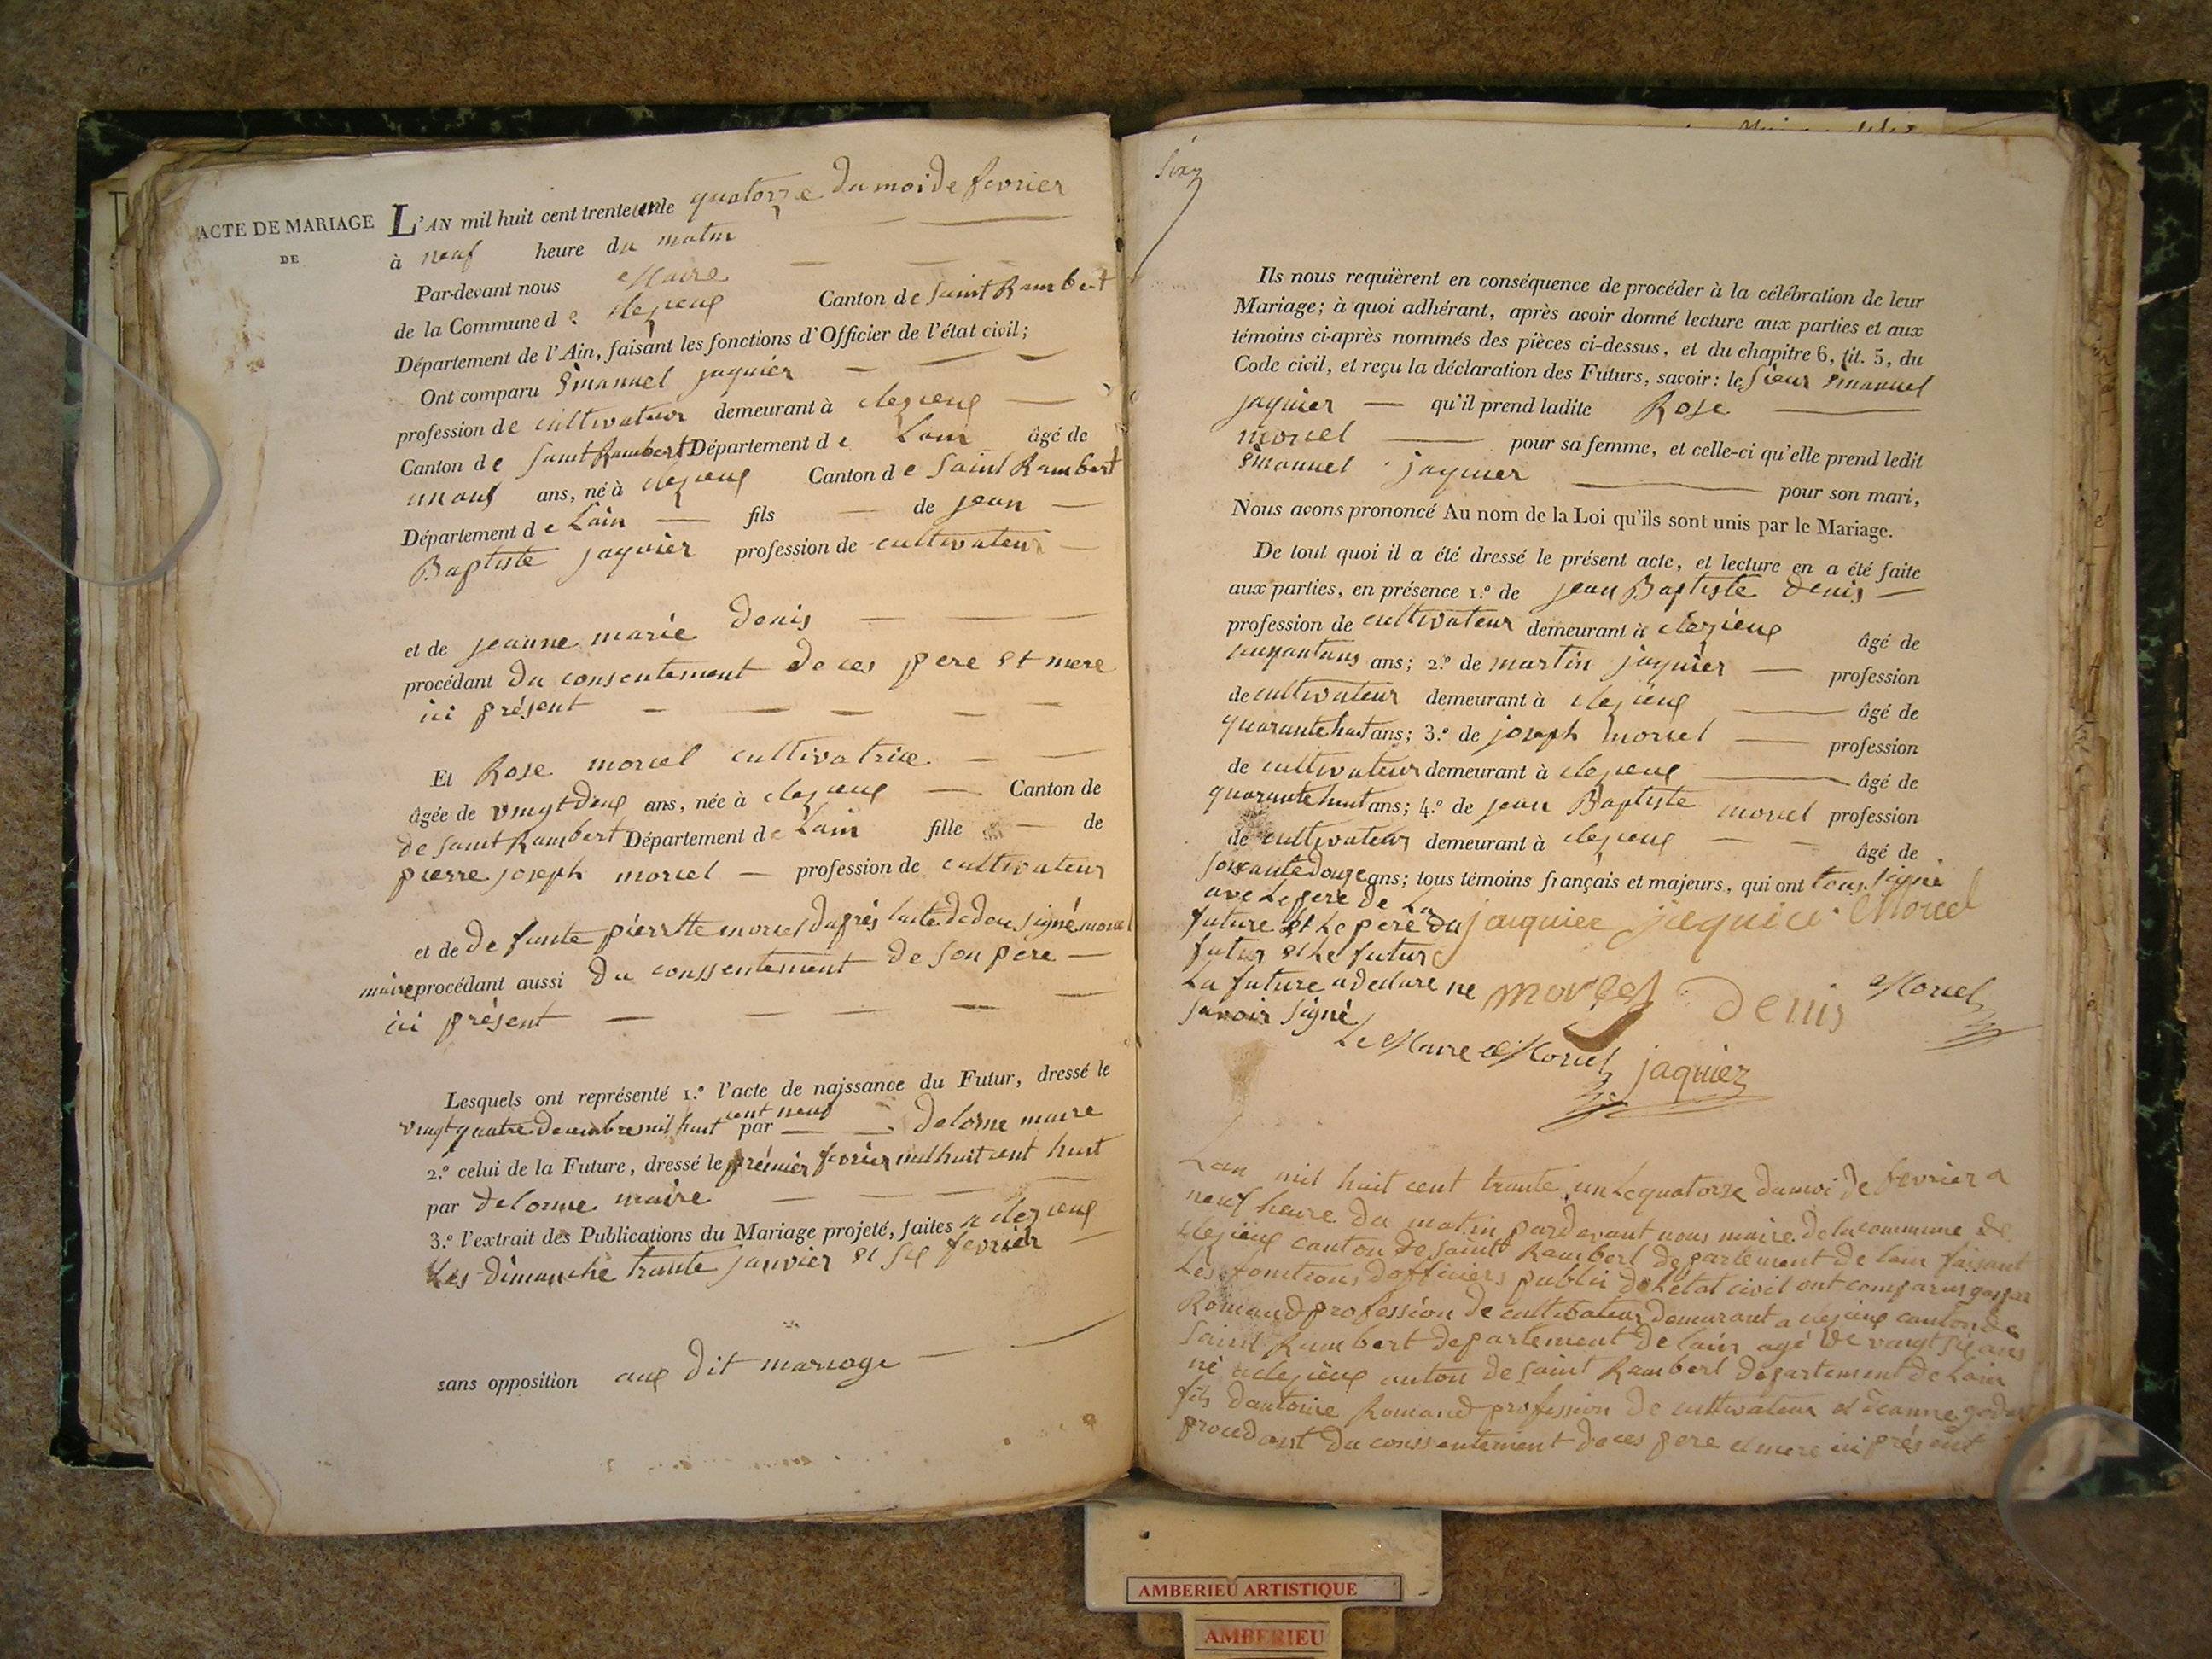 ACTE DE MARIAGE
DE
L'AN mil huit cent trente un le quatorze du moi de fevrier
à neuf heure du matin
Par-devant nous Maire
de la Commune de clezieux Canton de Saint Rambert
Département de l'Ain, faisant les fonctions d'Officier de l'état civil;
Ont comparu Emanuel jaquier
profession de cultivateur demeurant à clezieux
Canton de Saint Rambert Département de Lain âgé de
ans, né à clezieux Canton de Saint Rambert
Département de Lain fils de jean
Baptiste jaquier profession de cultivateur
et de jeanne marie Denis
procédant du consentement de ces pere et mere
ici présent
Et Rose morcel cultivatrice
âgée de vingt deux ans, née à clezieux Canton de
de Saint Rambert Département de Lain fille de
pierre joseph morcel profession de cultivateur
et de defunte pierrette morcel daprés lacte de signé morcel
maire procédant aussi du conssentement de son pere
ici présent
Lesquels ont représenté 1.º l'acte de naissance du Futur, dressé le
vingt quatre decembre mil huit cent neuf par delorme maire
2.º celui de la Future, dressé le prémiér fevriér mil huit cent huit
par delorme maire
3.º l'extrait des Publications du Mariage projeté, faites a clezieux
Les dimanche trante janvier et six fevrier
sans opposition aux dit mariage
Ils nous requièrent en conséquence de procéder à la célébration de leur
Mariage; à quoi adhérant, après avoir donné lecture aux parties et aux
témoins ci-après nommés des pièces ci-dessus, et du chapitre 6, tit. 5, du
Code civil, et reçu la déclaration des Futurs, savoir: le Sieur Emanuel
jaquier qu'il prend ladite Rose
morcel pour sa femme, et celle-ci qu'elle prend ledit
Emanuel jaquier pour son mari,
Nous avons prononcé Au nom de la Loi qu'ils sont unis par le Mariage.
De tout quoi il a été dressé le présent acte, et lecture en a été faite
aux parties, en présence 1.º de jean Baptiste Denis
profession de cultivateur demeurant à clezieux âgé de
ans; 2.º de martin jaquier profession
de cultivateur demeurant à clezieux âgé de
quarante huit ans; 3.º de joseph morcel profession
de cultivateur demeurant à clezieux âgé de
quarante huit ans; 4.º de jean Baptiste morcel profession
de cultivateur demeurant à clezieux âgé de
soixante douze ans; tous témoins français et majeurs, qui ont tous signé
avec Le pere de La
future et Le pere du jaquier jaquier Morcel
futur et Le futur
La future a declare ne morcel Denis Morcel
savoir signé
Le Maire Morcel jaquier
Lan mil huit cent trante un Le quatorze du moi de fevrier a
neuf heure du matin pardevant nous maire de la commune de
clezieux canton de Saint Rambert departement de lain faisant
Les fonctions dofficiers public de Létat civil ont comparus gaspar
Romand profession de cultivateur demeurant a clezieux canton de
Saint Rambert departement de lain agé de vangt six ans
né a clezieux canton de Saint Rambert departement de Lain
fils dantoine Romand profession de cultivateur et jeanne
procedant du conssentement de ces pere et mere ici présent
AMBERIEU ARTISTIQUE
AMBERIEU